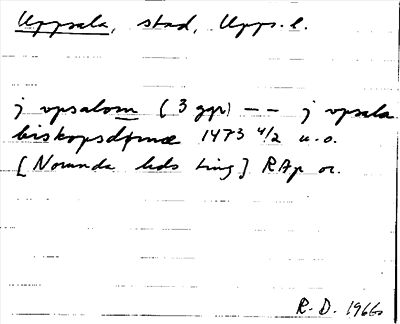 Uppsala, stad, Upps. l.
j vpsalom (3 ggr) -- j vpsala
biskopsdøme 1473 4/2 u.o.
[Norunda hds ting] RAp or.
R.D. 1966